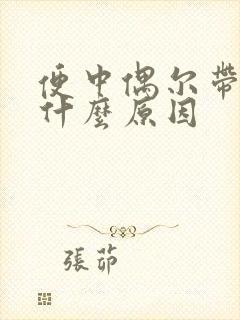 便中偶尔帶
什麼原因
張茆